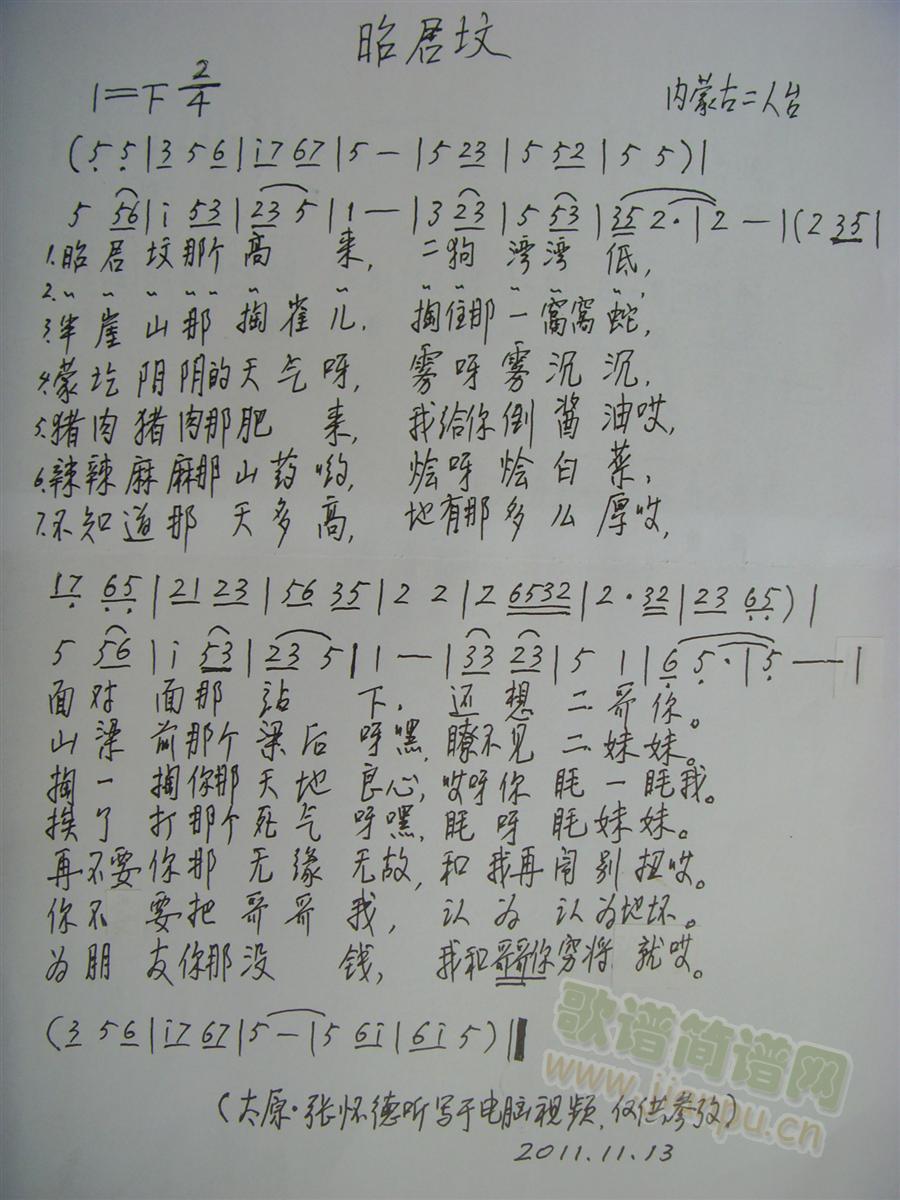 昭君坟
1=下 2/4
内蒙古二人台
(5 5|3 5 6|i7 67|5 —|5 23|5 52|5 5)|
5 56|i 53|23 5|1 —|3 23|5 53|35 2·|2 —|(2 35|
1.昭君坟那个高 来, 二狗湾湾低,
2.〃 〃 〃 〃 〃 〃 〃 〃 〃 〃 〃 〃,
3.半崖山那掏雀儿, 掏住那一窝窝蛇,
4.蒙圪阴阴的天气呀, 雾呀雾沉沉,
5.猪肉猪肉那肥 来, 我给你倒酱油哎,
6.辣辣麻麻那山药哟, 烩呀烩白菜,
7.不知道那天多高, 地有那多么厚哎,
17 65|21 23|56 35|2 2|2 6532|2·32|23 65)|
5 56|i 53|23 5|1 —|33 23|5 1|6 5·|5 —|
面对面那站 下, 还想二哥你。
山梁前那个梁后呀嘿,瞭不见二妹妹。
掏一掏你那天地良心,哎呀你眊一眊我。
挨了打那个死气呀嘿,眊呀眊妹妹。
再不要你那无缘无故,和我再闹别扭哎。
你不要把哥哥我, 认为认为地坏。
为朋友你那没 钱, 我和哥哥你穷将就哎。
(3 5 6|i7 67|5 —|5 6i|6i 5)‖
(太原·张怀德听写于电脑视频,仅供参考)
2011.11.13
歌谱简谱网
www.jianpu.cn